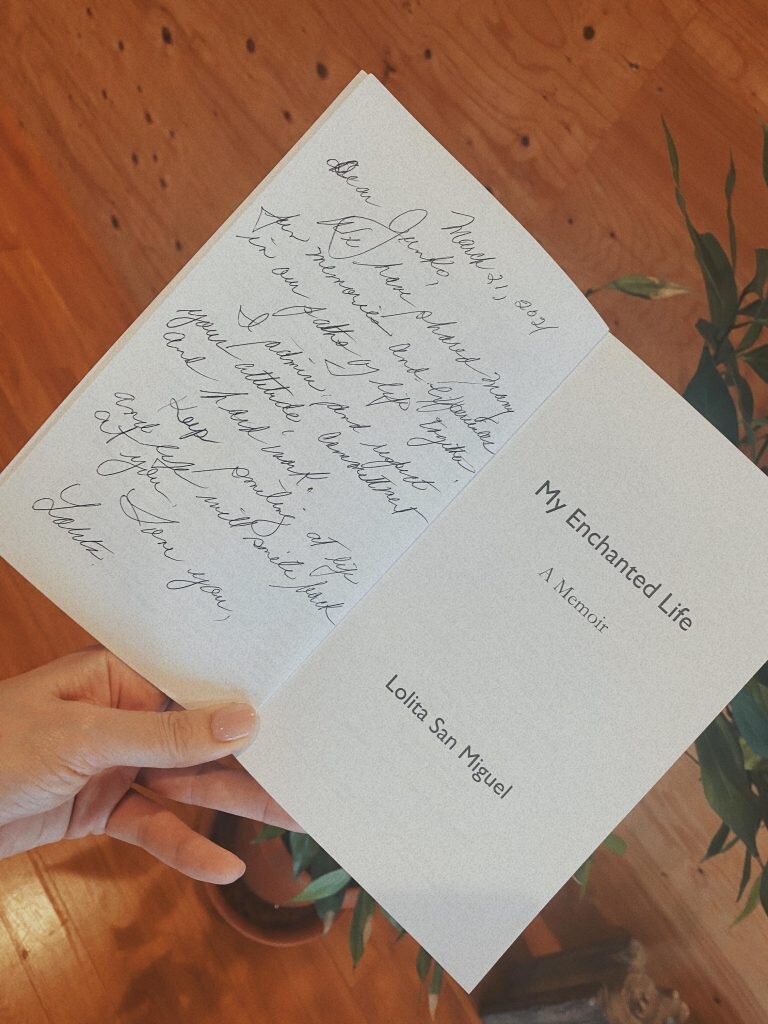 March 21, 2021
Dear Junko,
We have shared many
fun memories and experiences
in our paths of life together.
I admire and respect
your attitude, commitment
and hard work.
Keep smiling at life
and life will smile back
at you.
Love you,
Lolita.
My Enchanted Life
A Memoir
Lolita San Miguel